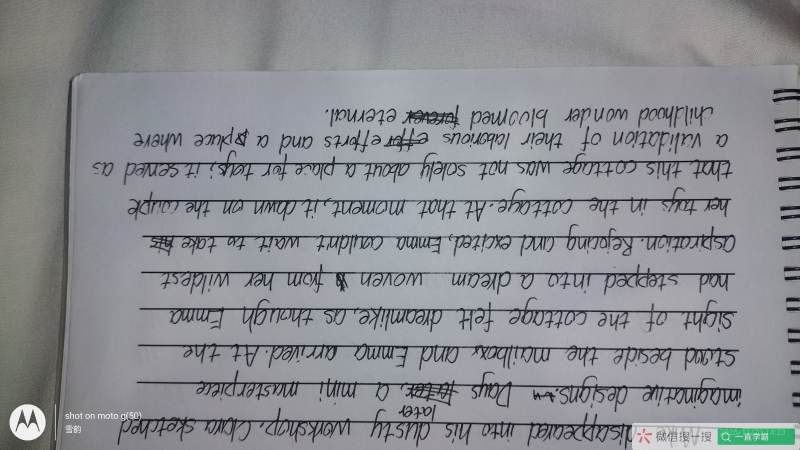 disappeared into his dusty workshop. Clara sketched
imaginative designs. Days later, a mini masterpiece
stood beside the mailbox and Emma arrived. At the
sight of the cottage felt dreamlike, as through Emma
had stepped into a dream woven from her wildest
aspiration. Rejoicing and excited, Emma couldn't wait to take
her toys in the cottage. At that moment, it dawn on the couple
that this cottage was not solely about a place for toys; it served as
a validation of their laborious efforts and a place where
childhood wonder bloomed eternal.
shot on moto g(50)
雪韵
微信搜一搜
一直学霸